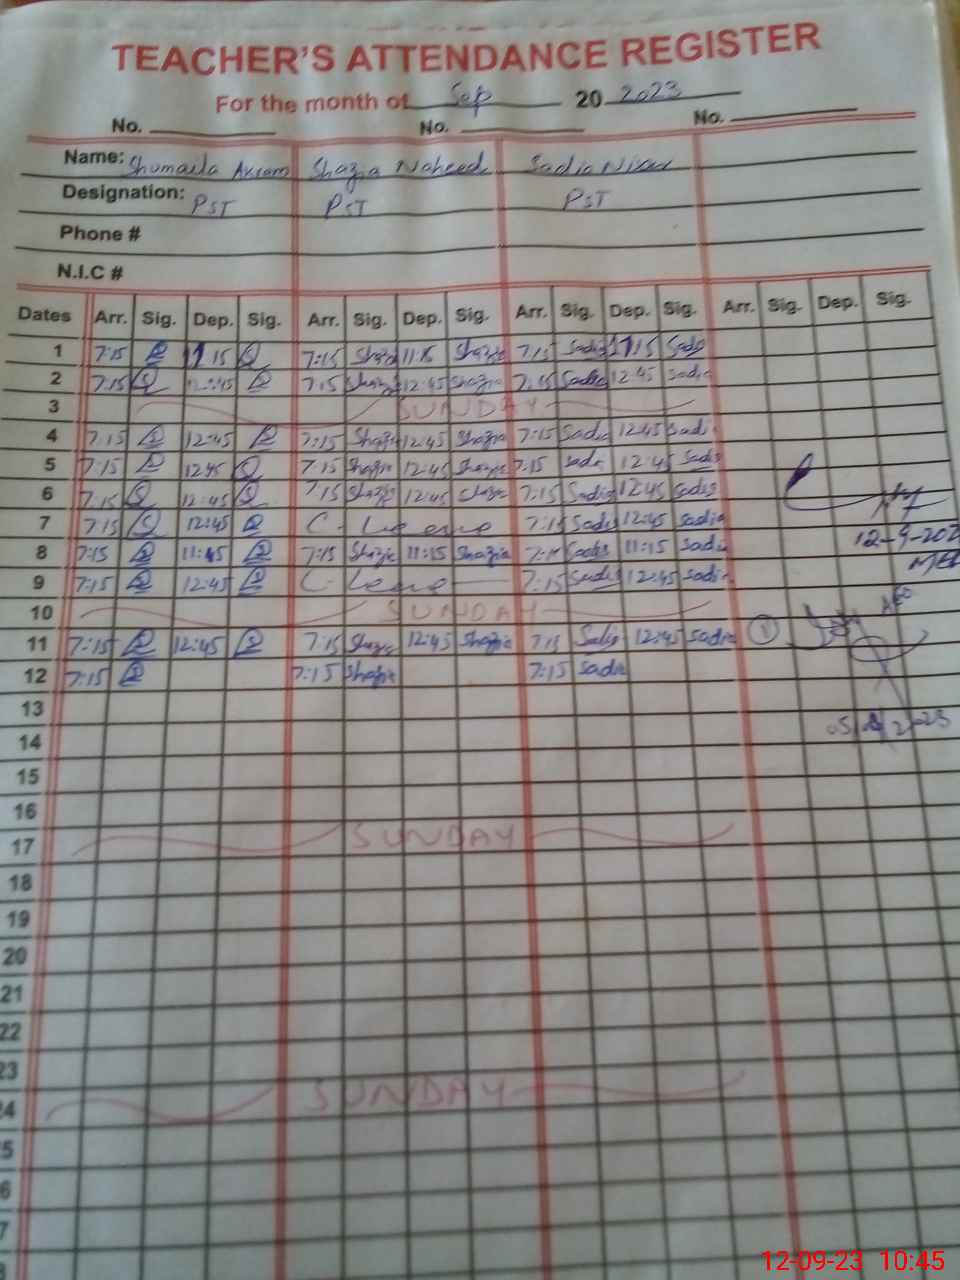 TEACHER'S ATTENDANCE REGISTER
For the month of Sep 20 2023
No. No. No.
Name: Shumaila Akram Shazia Naheed Sadia
Designation: PST PST PST
Phone #
N.I.C #
Dates Arr. Sig. Dep. Sig. Arr. Sig. Dep. Sig. Arr. Sig. Dep. Sig. Arr. Sig. Dep. Sig.
1 7:15 11:15 7:15 Shazia 11:15 Shazia 7:15 Sadia 11:15 Sadia
2 7:15 12:45 7:15 Shazia 12:45 Shazia 7:15 Sadia 12:45 Sadia
3 SUNDAY
4 7:15 12:45 7:15 Shazia 12:45 Shazia 7:15 Sadia 12:45 Sadia
5 7:15 12:45 7:15 Shazia 12:45 Shazia 7:15 Sadia 12:45 Sadia
6 7:15 12:45 7:15 Shazia 12:45 Shazia 7:15 Sadia 12:45 Sadia
7 7:15 12:45 C-Leave 7:15 Sadia 12:45 Sadia
8 7:15 11:15 7:15 Shazia 11:15 Shazia 7:15 Sadia 11:15 Sadia
12-9-202
9 7:15 12:45 C-Leave 7:15 Sadia 12:45 Sadia
10 SUNDAY
AEO
11 7:15 12:45 7:15 Shazia 12:45 Shazia 7:15 Sadia 12:45 Sadia
12 7:15 7:15 Shazia 7:15 Sadia
13
14
15
16
17 SUNDAY
18
19
20
21
22
23
24 SUNDAY
5
6
7
12-09-23 10:45